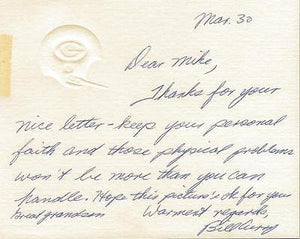 Mar. 30
Dear Mike,
Thanks for your
nice letter - keep your personal
faith and those physical problems
won't be more than you can
handle. Hope this picture's ok for your
great grandson Warmest regards,
Bill Curry